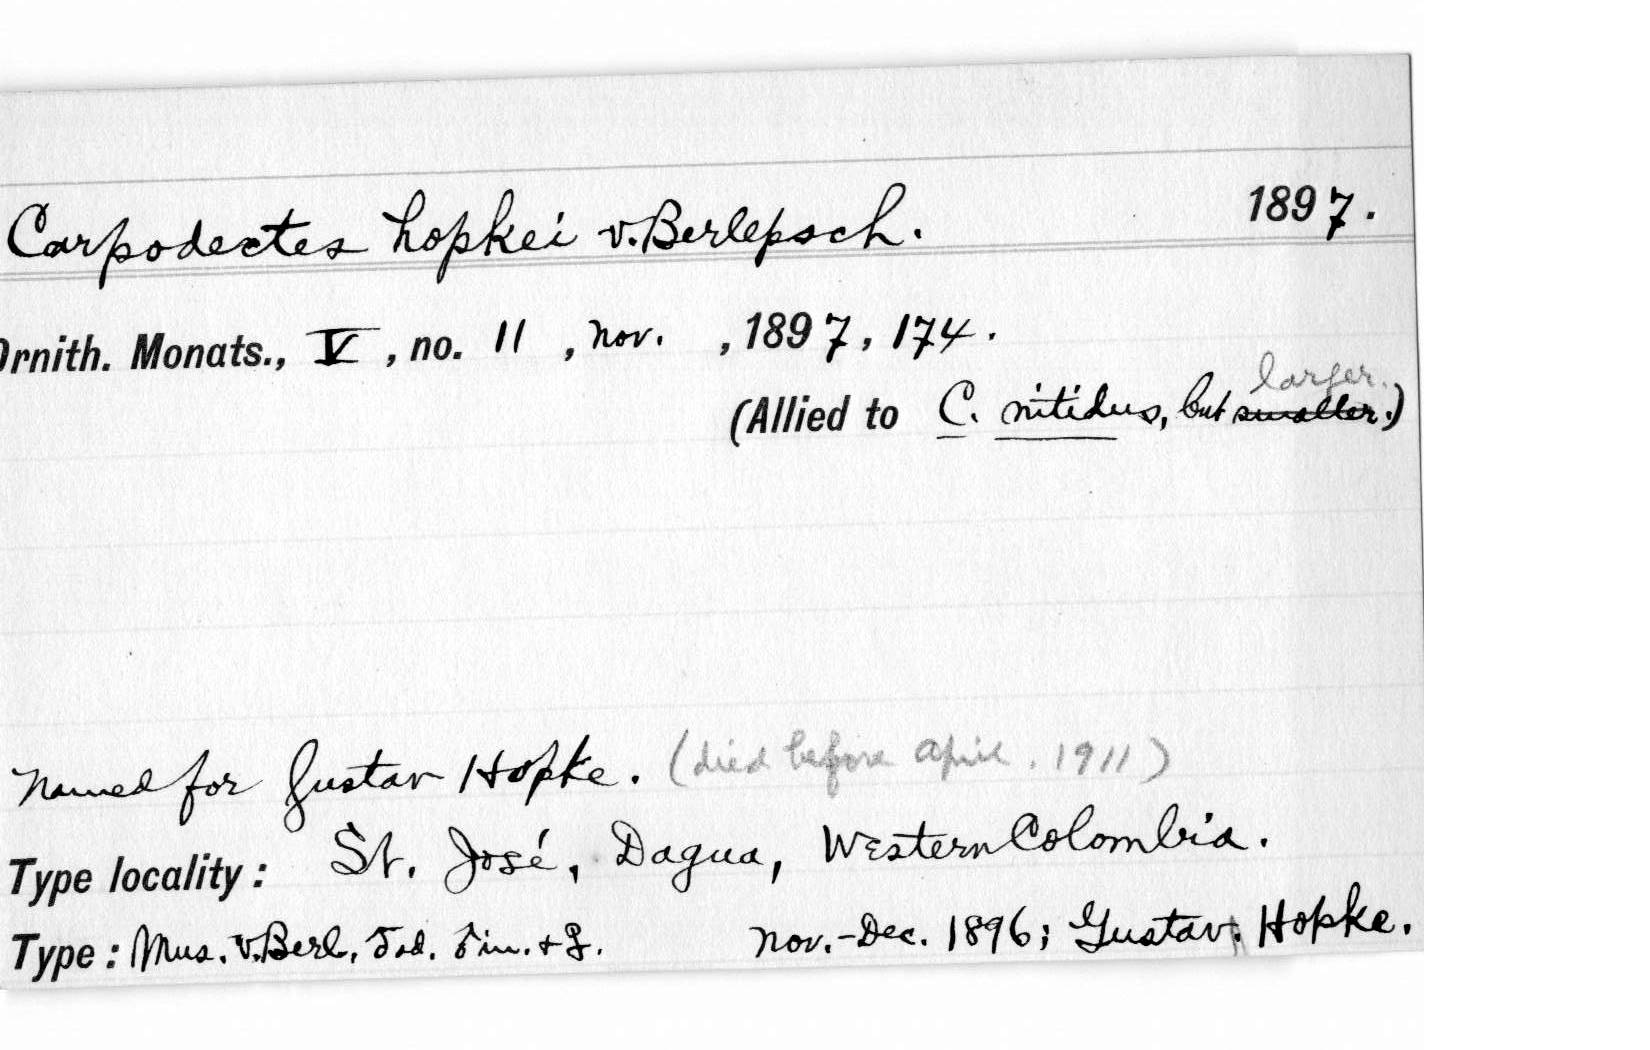 Carpodectes hopkei v.Berlepsch. 1897.
Ornith. Monats., V, no. 11, Nov. , 1897, 174.
larger.
(Allied to C. nitidus, but smaller.)
Named for Gustav Hopke. (died before April. 1911)
Type locality: St. José, Dagua, Western Colombia.
Type: Mus. v.Berl, ♂ad. ♂im. + ♀. Nov.-Dec. 1896; Gustav. Hopke.